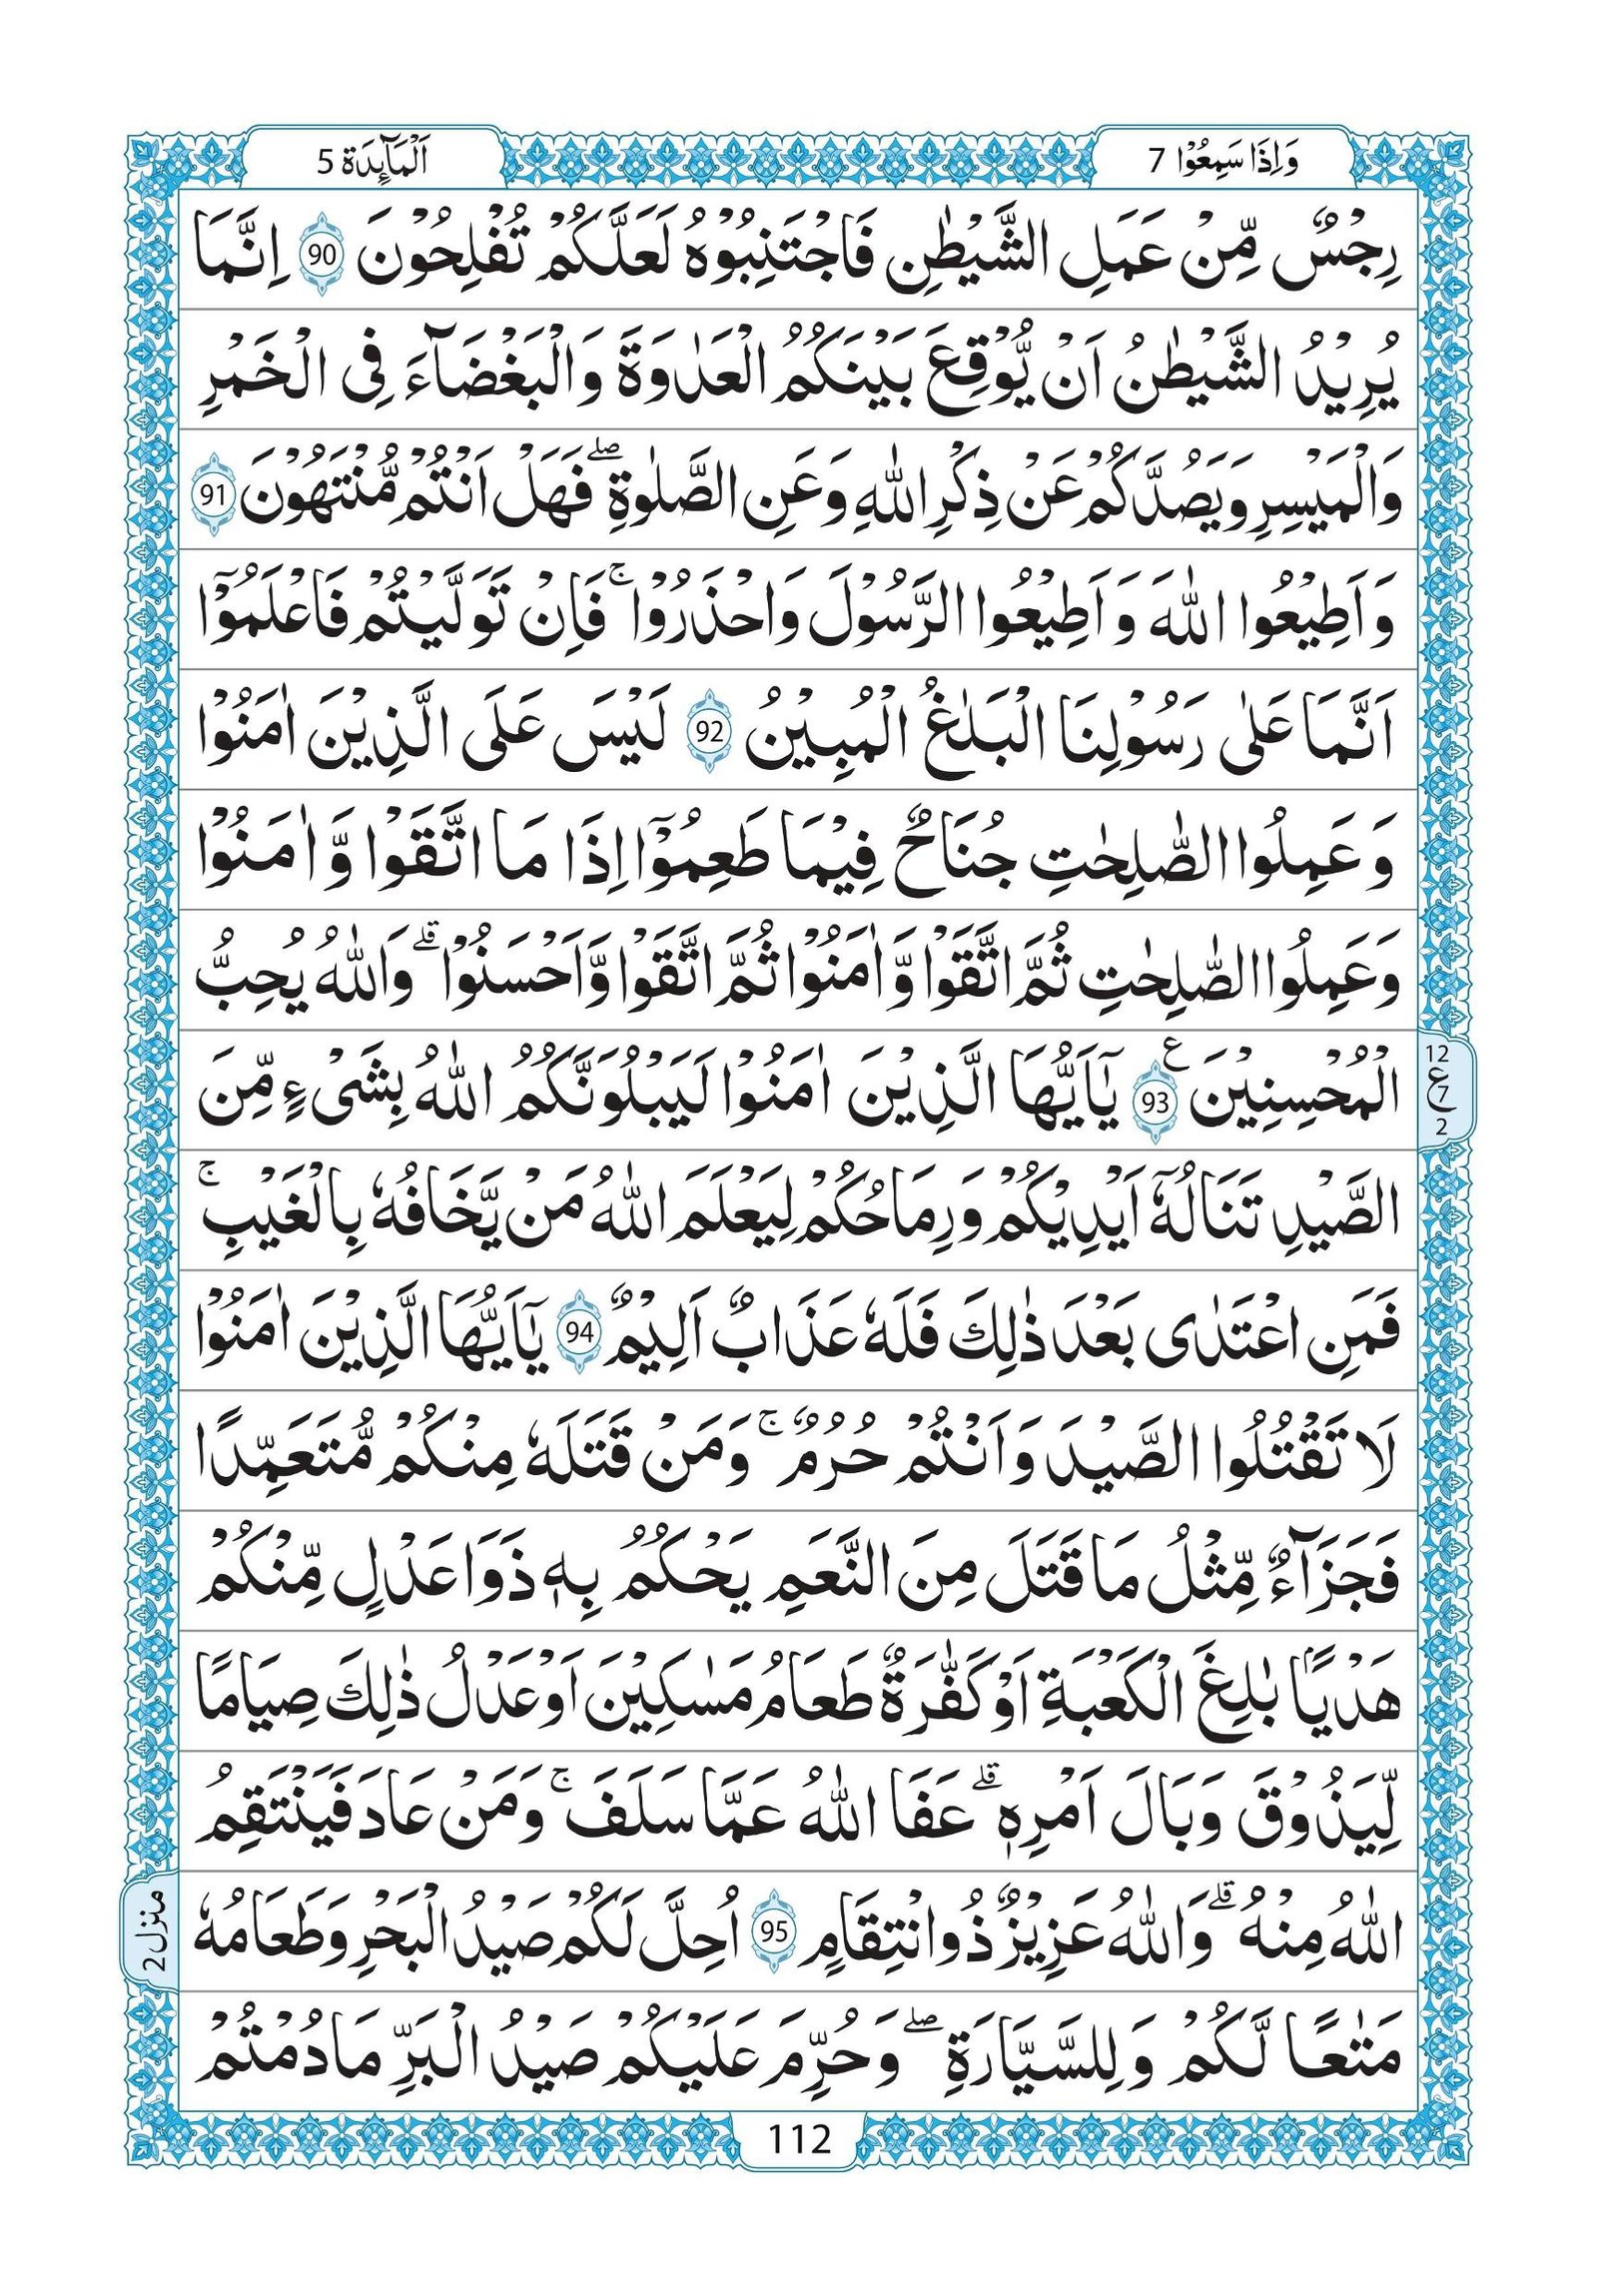 وَاِذَا سَمِعُوْا 7
اَلْمَآىِٕدَة 5
رِجْسٌ مِّنْ عَمَلِ الشَّيْطٰنِ فَاجْتَنِبُوْهُ لَعَلَّكُمْ تُفْلِحُوْنَ 90 اِنَّمَا
يُرِيْدُ الشَّيْطٰنُ اَنْ يُّوْقِعَ بَيْنَكُمُ الْعَدٰوَةَ وَالْبَغْضَآءَ فِى الْخَمْرِ
وَالْمَيْسِرِ وَيَصُدَّكُمْ عَنْ ذِكْرِ اللّٰهِ وَعَنِ الصَّلٰوةِ ۖ فَهَلْ اَنْتُمْ مُّنْتَهُوْنَ 91
وَاَطِيْعُوا اللّٰهَ وَاَطِيْعُوا الرَّسُوْلَ وَاحْذَرُوْا ۚ فَاِنْ تَوَلَّيْتُمْ فَاعْلَمُوْٓا
اَنَّمَا عَلٰى رَسُوْلِنَا الْبَلٰغُ الْمُبِيْنُ 92 لَيْسَ عَلَى الَّذِيْنَ اٰمَنُوْا
وَعَمِلُوا الصّٰلِحٰتِ جُنَاحٌ فِيْمَا طَعِمُوْٓا اِذَا مَا اتَّقَوْا وَّاٰمَنُوْا
وَعَمِلُوا الصّٰلِحٰتِ ثُمَّ اتَّقَوْا وَّاٰمَنُوْا ثُمَّ اتَّقَوْا وَّاَحْسَنُوْا ۗ وَاللّٰهُ يُحِبُّ
الْمُحْسِنِيْنَ ع 93 يٰٓاَيُّهَا الَّذِيْنَ اٰمَنُوْا لَيَبْلُوَنَّكُمُ اللّٰهُ بِشَىْءٍ مِّنَ
12
ع 7
2
الصَّيْدِ تَنَالُهٗٓ اَيْدِيْكُمْ وَرِمَاحُكُمْ لِيَعْلَمَ اللّٰهُ مَنْ يَّخَافُهٗ بِالْغَيْبِ ۚ
فَمَنِ اعْتَدٰى بَعْدَ ذٰلِكَ فَلَهٗ عَذَابٌ اَلِيْمٌ 94 يٰٓاَيُّهَا الَّذِيْنَ اٰمَنُوْا
لَا تَقْتُلُوا الصَّيْدَ وَاَنْتُمْ حُرُمٌ ۚ وَمَنْ قَتَلَهٗ مِنْكُمْ مُّتَعَمِّدًا
فَجَزَآءٌ مِّثْلُ مَا قَتَلَ مِنَ النَّعَمِ يَحْكُمُ بِهٖ ذَوَا عَدْلٍ مِّنْكُمْ
هَدْيًاۢ بٰلِغَ الْكَعْبَةِ اَوْ كَفّٰرَةٌ طَعَامُ مَسٰكِيْنَ اَوْ عَدْلُ ذٰلِكَ صِيَامًا
لِّيَذُوْقَ وَبَالَ اَمْرِهٖ ۗ عَفَا اللّٰهُ عَمَّا سَلَفَ ۚ وَمَنْ عَادَ فَيَنْتَقِمُ
اللّٰهُ مِنْهُ ۗ وَاللّٰهُ عَزِيْزٌ ذُو انْتِقَامٍ 95 اُحِلَّ لَكُمْ صَيْدُ الْبَحْرِ وَطَعَامُهٗ
منزل 2
مَتٰعًا لَّكُمْ وَلِلسَّيَّارَةِ ۖ وَحُرِّمَ عَلَيْكُمْ صَيْدُ الْبَرِّ مَا دُمْتُمْ
112